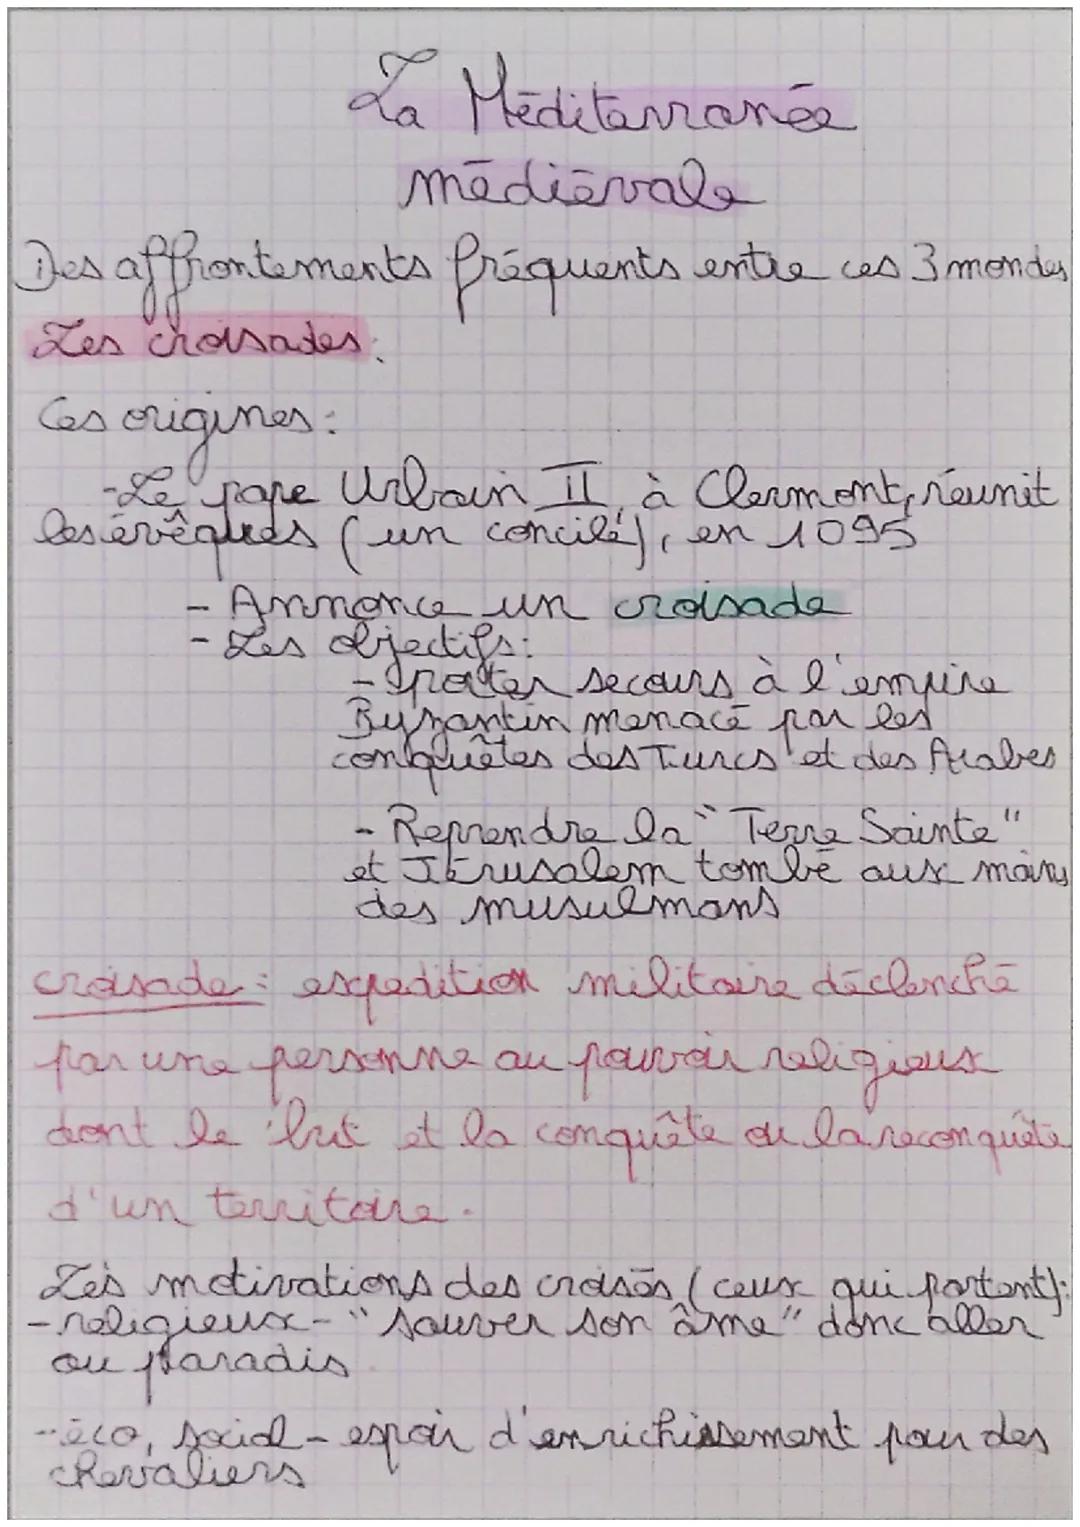 La Méditerranée
médiévale
Des affrontements fréquents entre ces 3 mondes
Les croisades:
Ces origines:
-Le pape Urbain II, à Clermont, réunit
les évêques (un concilé), en 1095
- Annonce un croisade
- Les objectifs:
- porter secours à l'empire
Byzantin menacé par les
conquêtes des Turcs et des Arabes
- Reprendre la "Terre Sainte"
et Jérusalem tombé aux mains
des musulmans
croisade: expedition militaire déclenché
par une personne au pouvoir religieux
dont le but et la conquête ou la reconquête
d'un territoire.
Les motivations des croisés (ceux qui partent):
- religieux - "sauver son âme" donc aller
au paradis
- éco, social - espoir d'enrichissement pour des
chevaliers